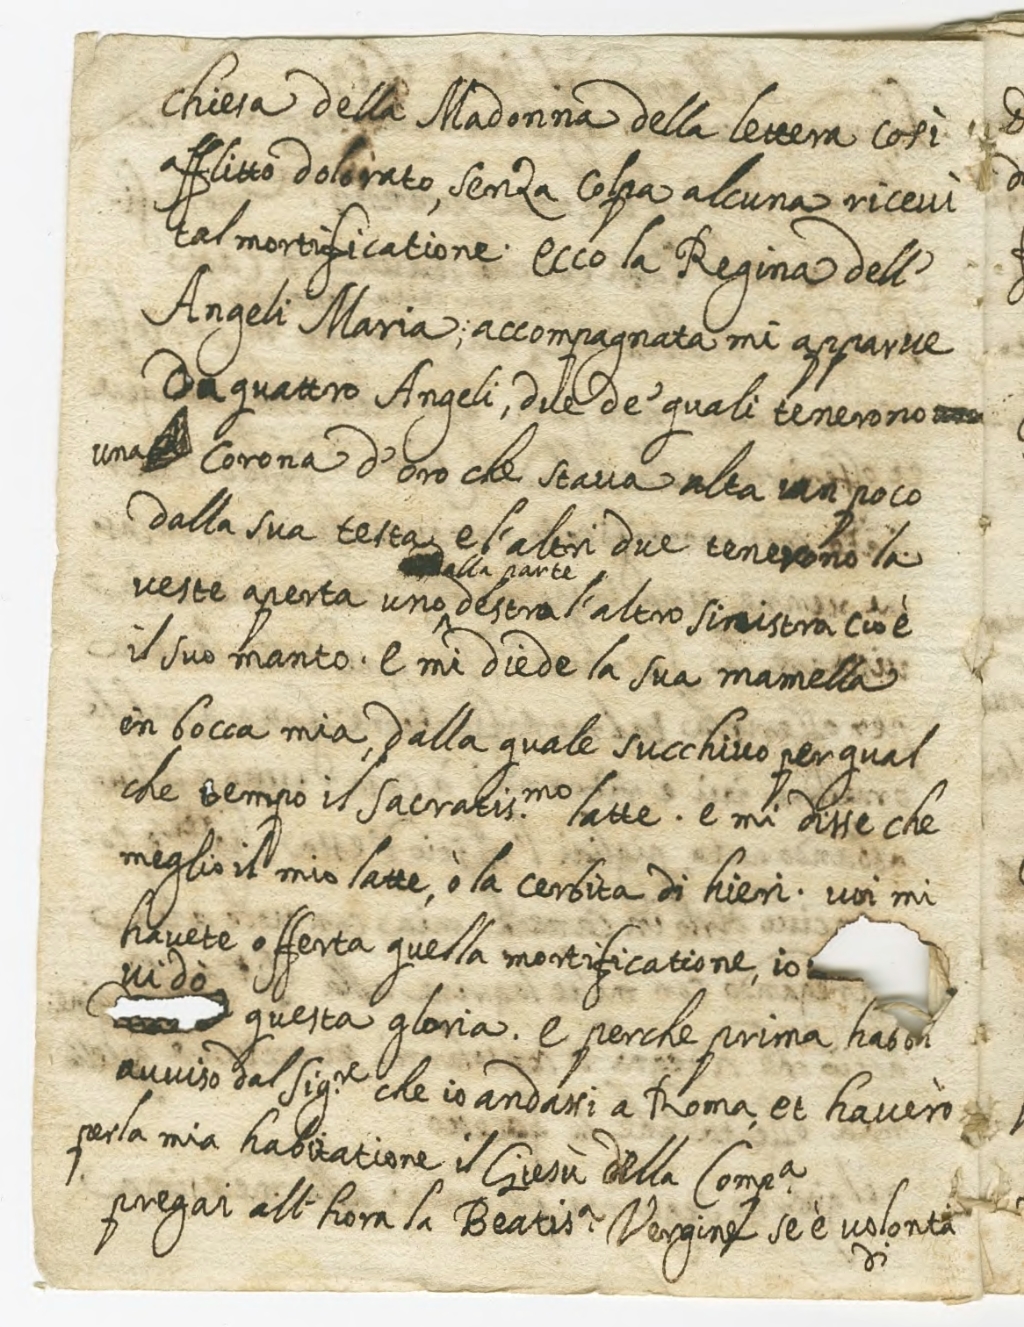 chiesa della Madonna della lettera così
afflitto dolorato, senza colpa alcuna riceui
tal mortificatione. ecco la Regina dell'
Angeli Maria; accompagnata mi apparue
Da quattro Angeli, due de' quali tenerono
una Corona d'oro che staua alta un poco
dalla sua testa e l'altri due tenerono la
dalla parte
ueste aperta uno destra l'altro sinistra cioè
il suo manto. e mi diede la sua mamella
in bocca mia, dalla quale succhiuo per qual
che tempo il Sacratis.mo latte. e mi disse che
meglio il mio latte, ò la cerbita di hieri. uoi mi
hauete offerta quella mortificatione, io
ui dò
questa gloria. e perche prima habbi
auuiso dal Sig.re che io andassi a Roma, et hauerò
per la mia habitatione il Giesù della Comp.a
pregai all'hora la Beatis.a Vergine se è uolontà
di